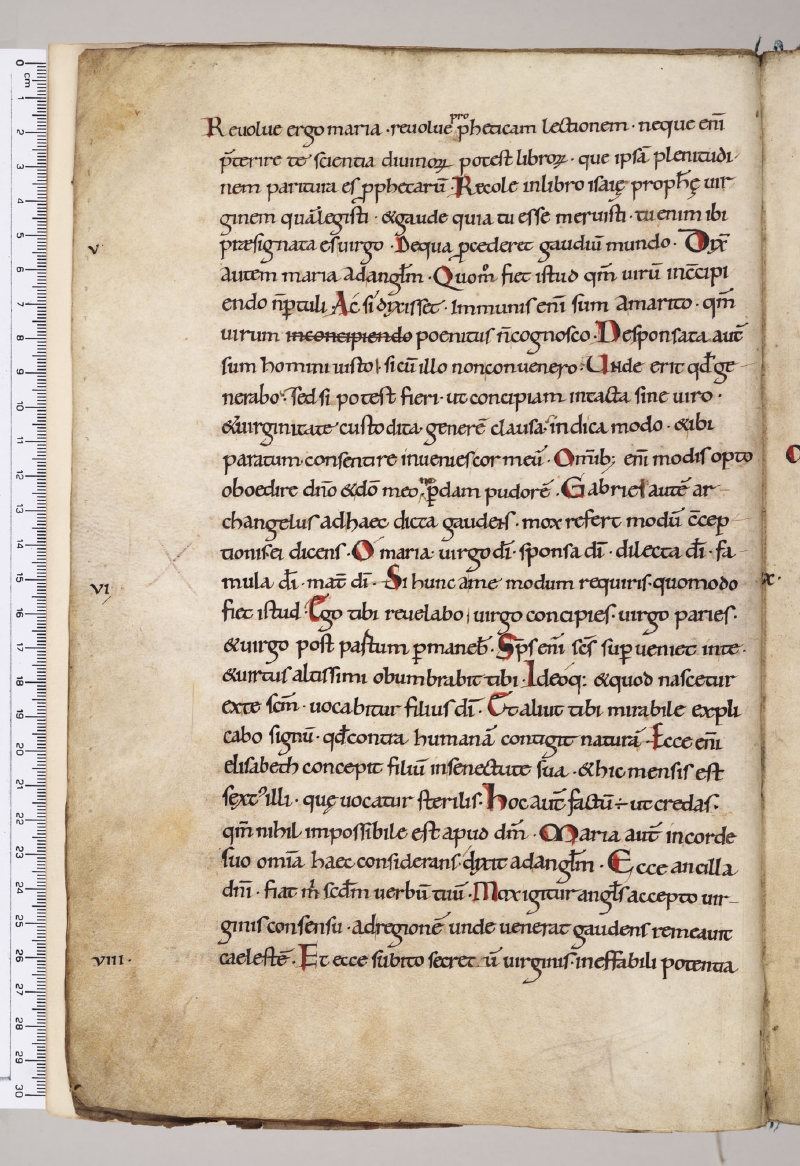 Reuolue ergo maria · reuolue ꝓpheticam lectionem · neque eni̅
p̅terire te scientia diuinoꝝ potest libroꝝ · que ipsā plenitudi
nem paritura es ꝓphetarū · Recole in libro isaię prophę̅ uir
ginem quā legisti · & gaude quia tu esse meruisti · tu enim ibi
v præsignata es uirgo · De qua ꝓcederet gaudiū mundo · Dix̅
autem maria ad angl̅m · Quom̊ fiet istud qm̅ uirū inc̅cipi
endo n̅ ꝑtuli · Ac si dyxisset · Immunis eni̅ sum a marito · qm̅
uirum inconcipiendo poenitus n̅ cognosco · Desponsata aut̅
sum homini iusto · si cū illo non conuenero · Unde erit qd̅ ge
nerabo · Sed si potest fieri · ut concipiam intacta sine uiro ·
& uirginitate custodita · generē clausa · indica modo · & ibi
paratum consentire inuenies cor meū · Omib; eni̅ modis opto
oboedire dn̅o & dō meo ꝑdam pudorē · Gabriel autē ar
changelus ad haec dicta gaudens · mox refert modū c̅cep
tionis ei dicens · O maria uirgo dı̅ · sponsa dı̅ · dilecta dı̅ · fa
vi mula dı̅ · mat̅ dı̅ · Si hunc a me modum requiris · quomodo
fiet istud · Ego tibi reuelabo · uirgo concipies · uirgo paries ·
& uirgo post partum ꝑmaneb̅ · Sp̅s eni̅ sc̅s suꝑueniet in te ·
& uirtus altissimi obumbrabit tibi · Ideoq; & quod nascetur
ex te sc̅m · uocabitur filius dı̅ · Et aliut tibi mirabile expli
cabo signū · qd̅ contra humanā contigit naturā · Ecce eni̅
elisabeth concepit filiū in senectute sua · & hic mensis est
sext᾿ illi · quę uocatur sterilis · Hoc aut̅ factū ÷ ut credas ·
qm̅ nihil impossibile est apud dm̅ · Maria aut̅ in corde
suo omīa haec considerans · dyxit ad angl̅m · Ecce ancilla
dn̅i · fiat m̅ scd̅m uerbū tuū · Mox igitur angl̅s accepto uir
ginis consensu · ad regionē unde uenerat gaudens remeauit
viii · caelestē · Et ecce subito secret ū uirginis · ineffabili potentia